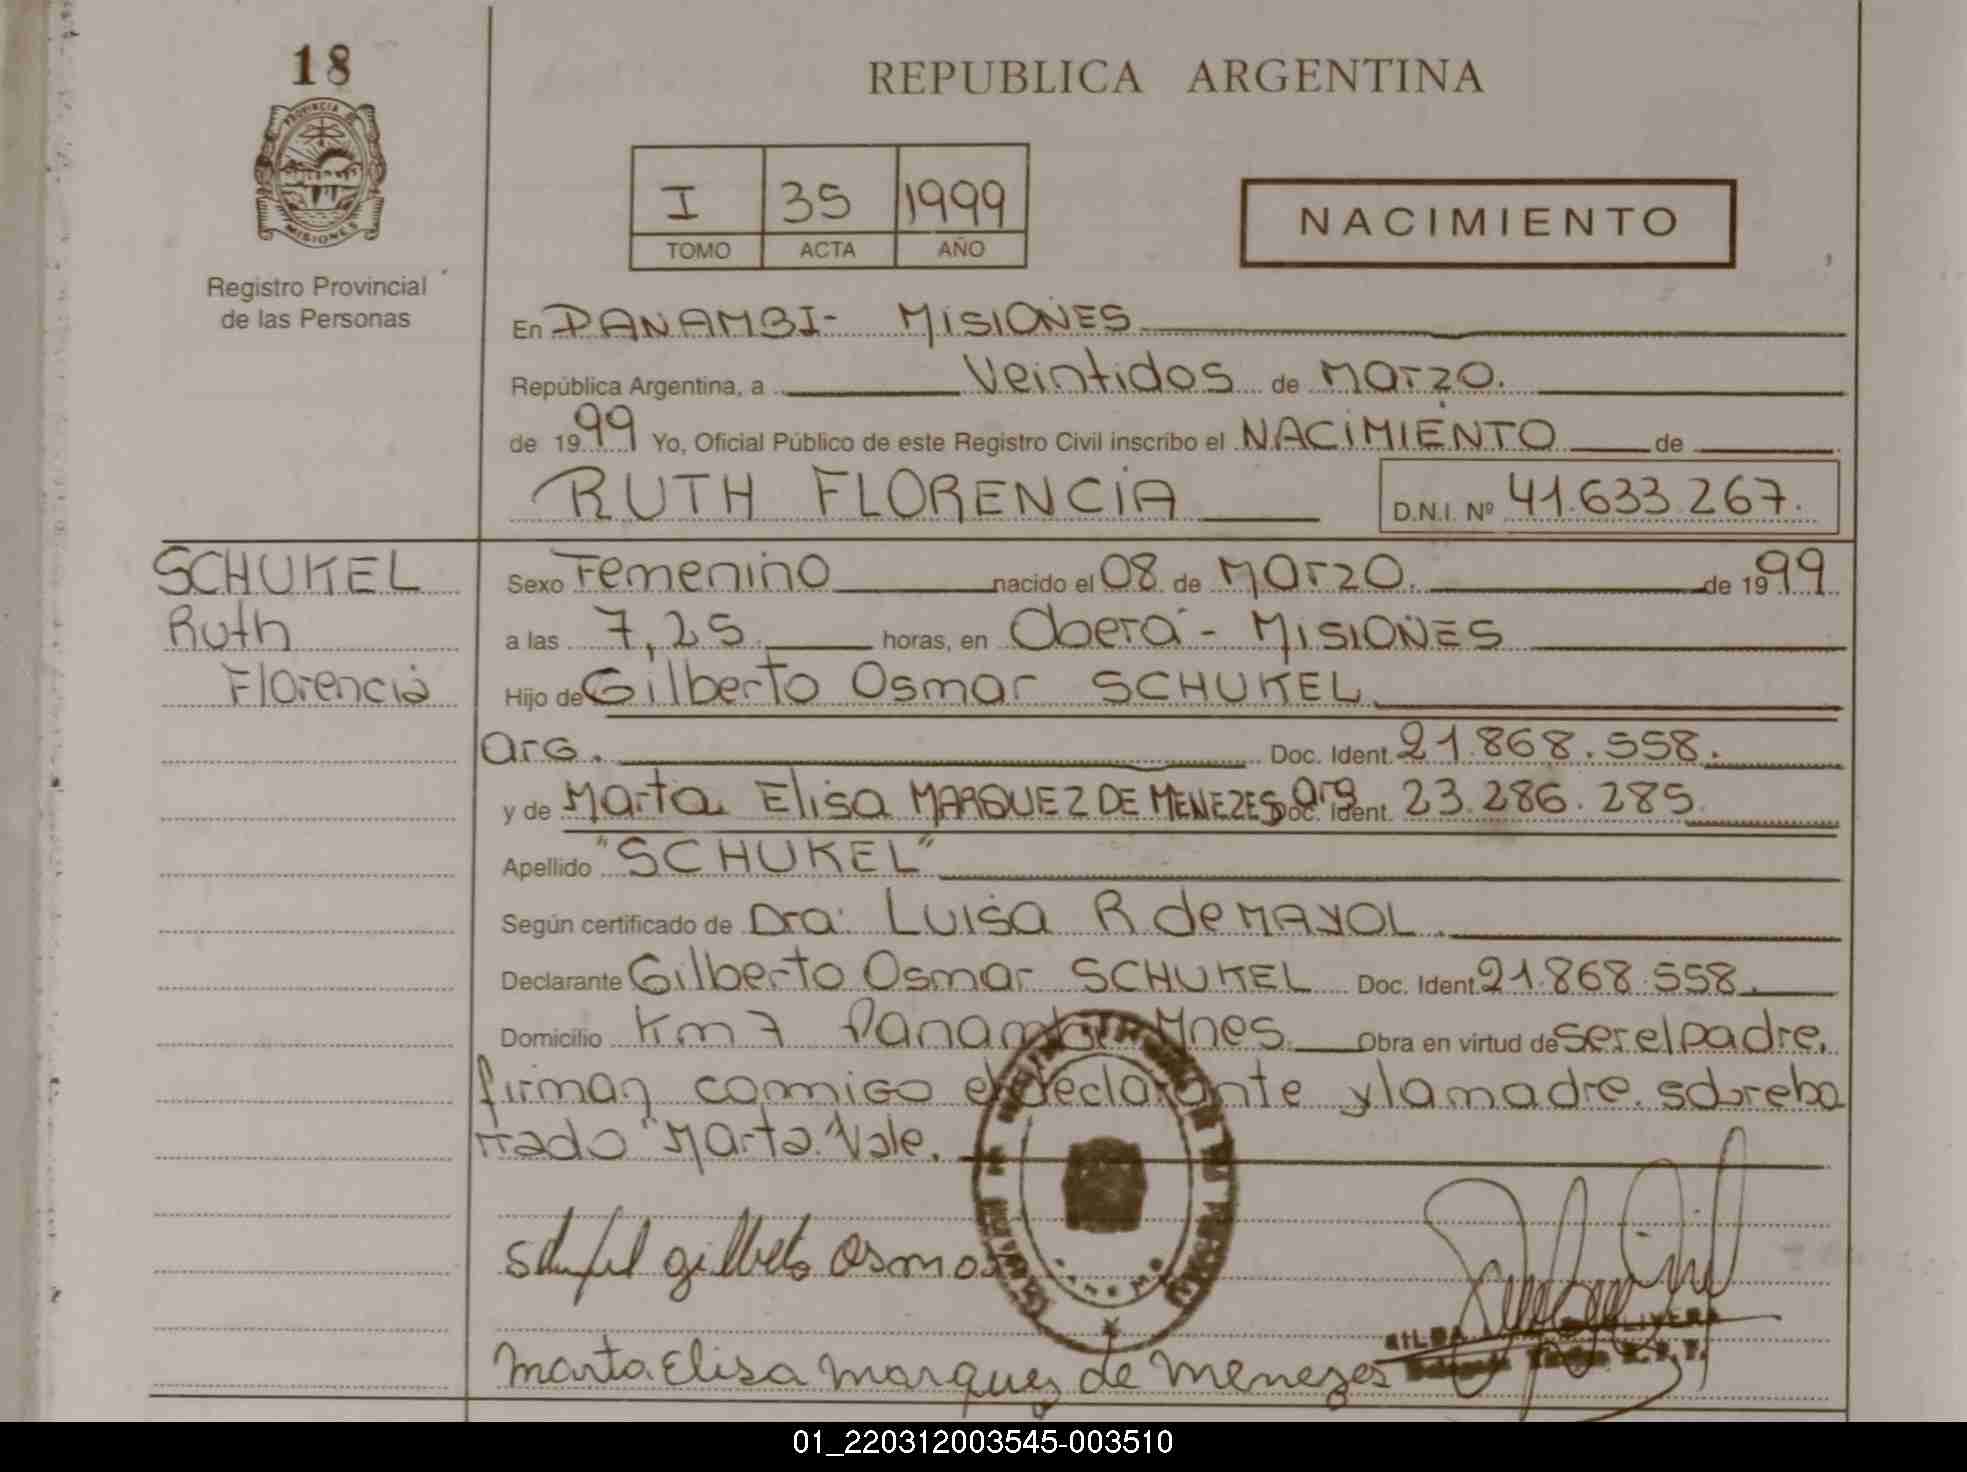 18
PROVINCIA DE
MISIONES
Registro Provincial
de las Personas
REPUBLICA ARGENTINA
I 35 1999
TOMO ACTA AÑO
NACIMIENTO
En PANAMBI- MISIONES
República Argentina, a Veintidos de Marzo.
de 1999 Yo, Oficial Público de este Registro Civil inscribo el NACIMIENTO de
RUTH FLORENCIA D.N.I. Nº 41.633.267.
SCHUKEL
Ruth
Florencia
Sexo Femenino nacido el 08 de Marzo. de 1999
a las 7,25 horas, en Oberá - MISIONES
Hijo de Gilberto Osmar SCHUKEL
arg. Doc. Ident. 21.868.558.
y de Marta Elisa MARQUEZ DE MENEZES arg Doc. Ident. 23.286.285
Apellido "SCHUKEL"
Según certificado de Dra: Luisa R de MAYOL.
Declarante Gilberto Osmar SCHUKEL Doc. Ident. 21.868.558.
Domicilio Km 7 Panambi Mnes. Obra en virtud de ser el padre.
firman conmigo el declarante y la madre. sobreba
rrado "Marta" Vale.
Gilberto Osmar
Marta Elisa Marquez de Menezes
OLIVERA
01_220312003545-003510